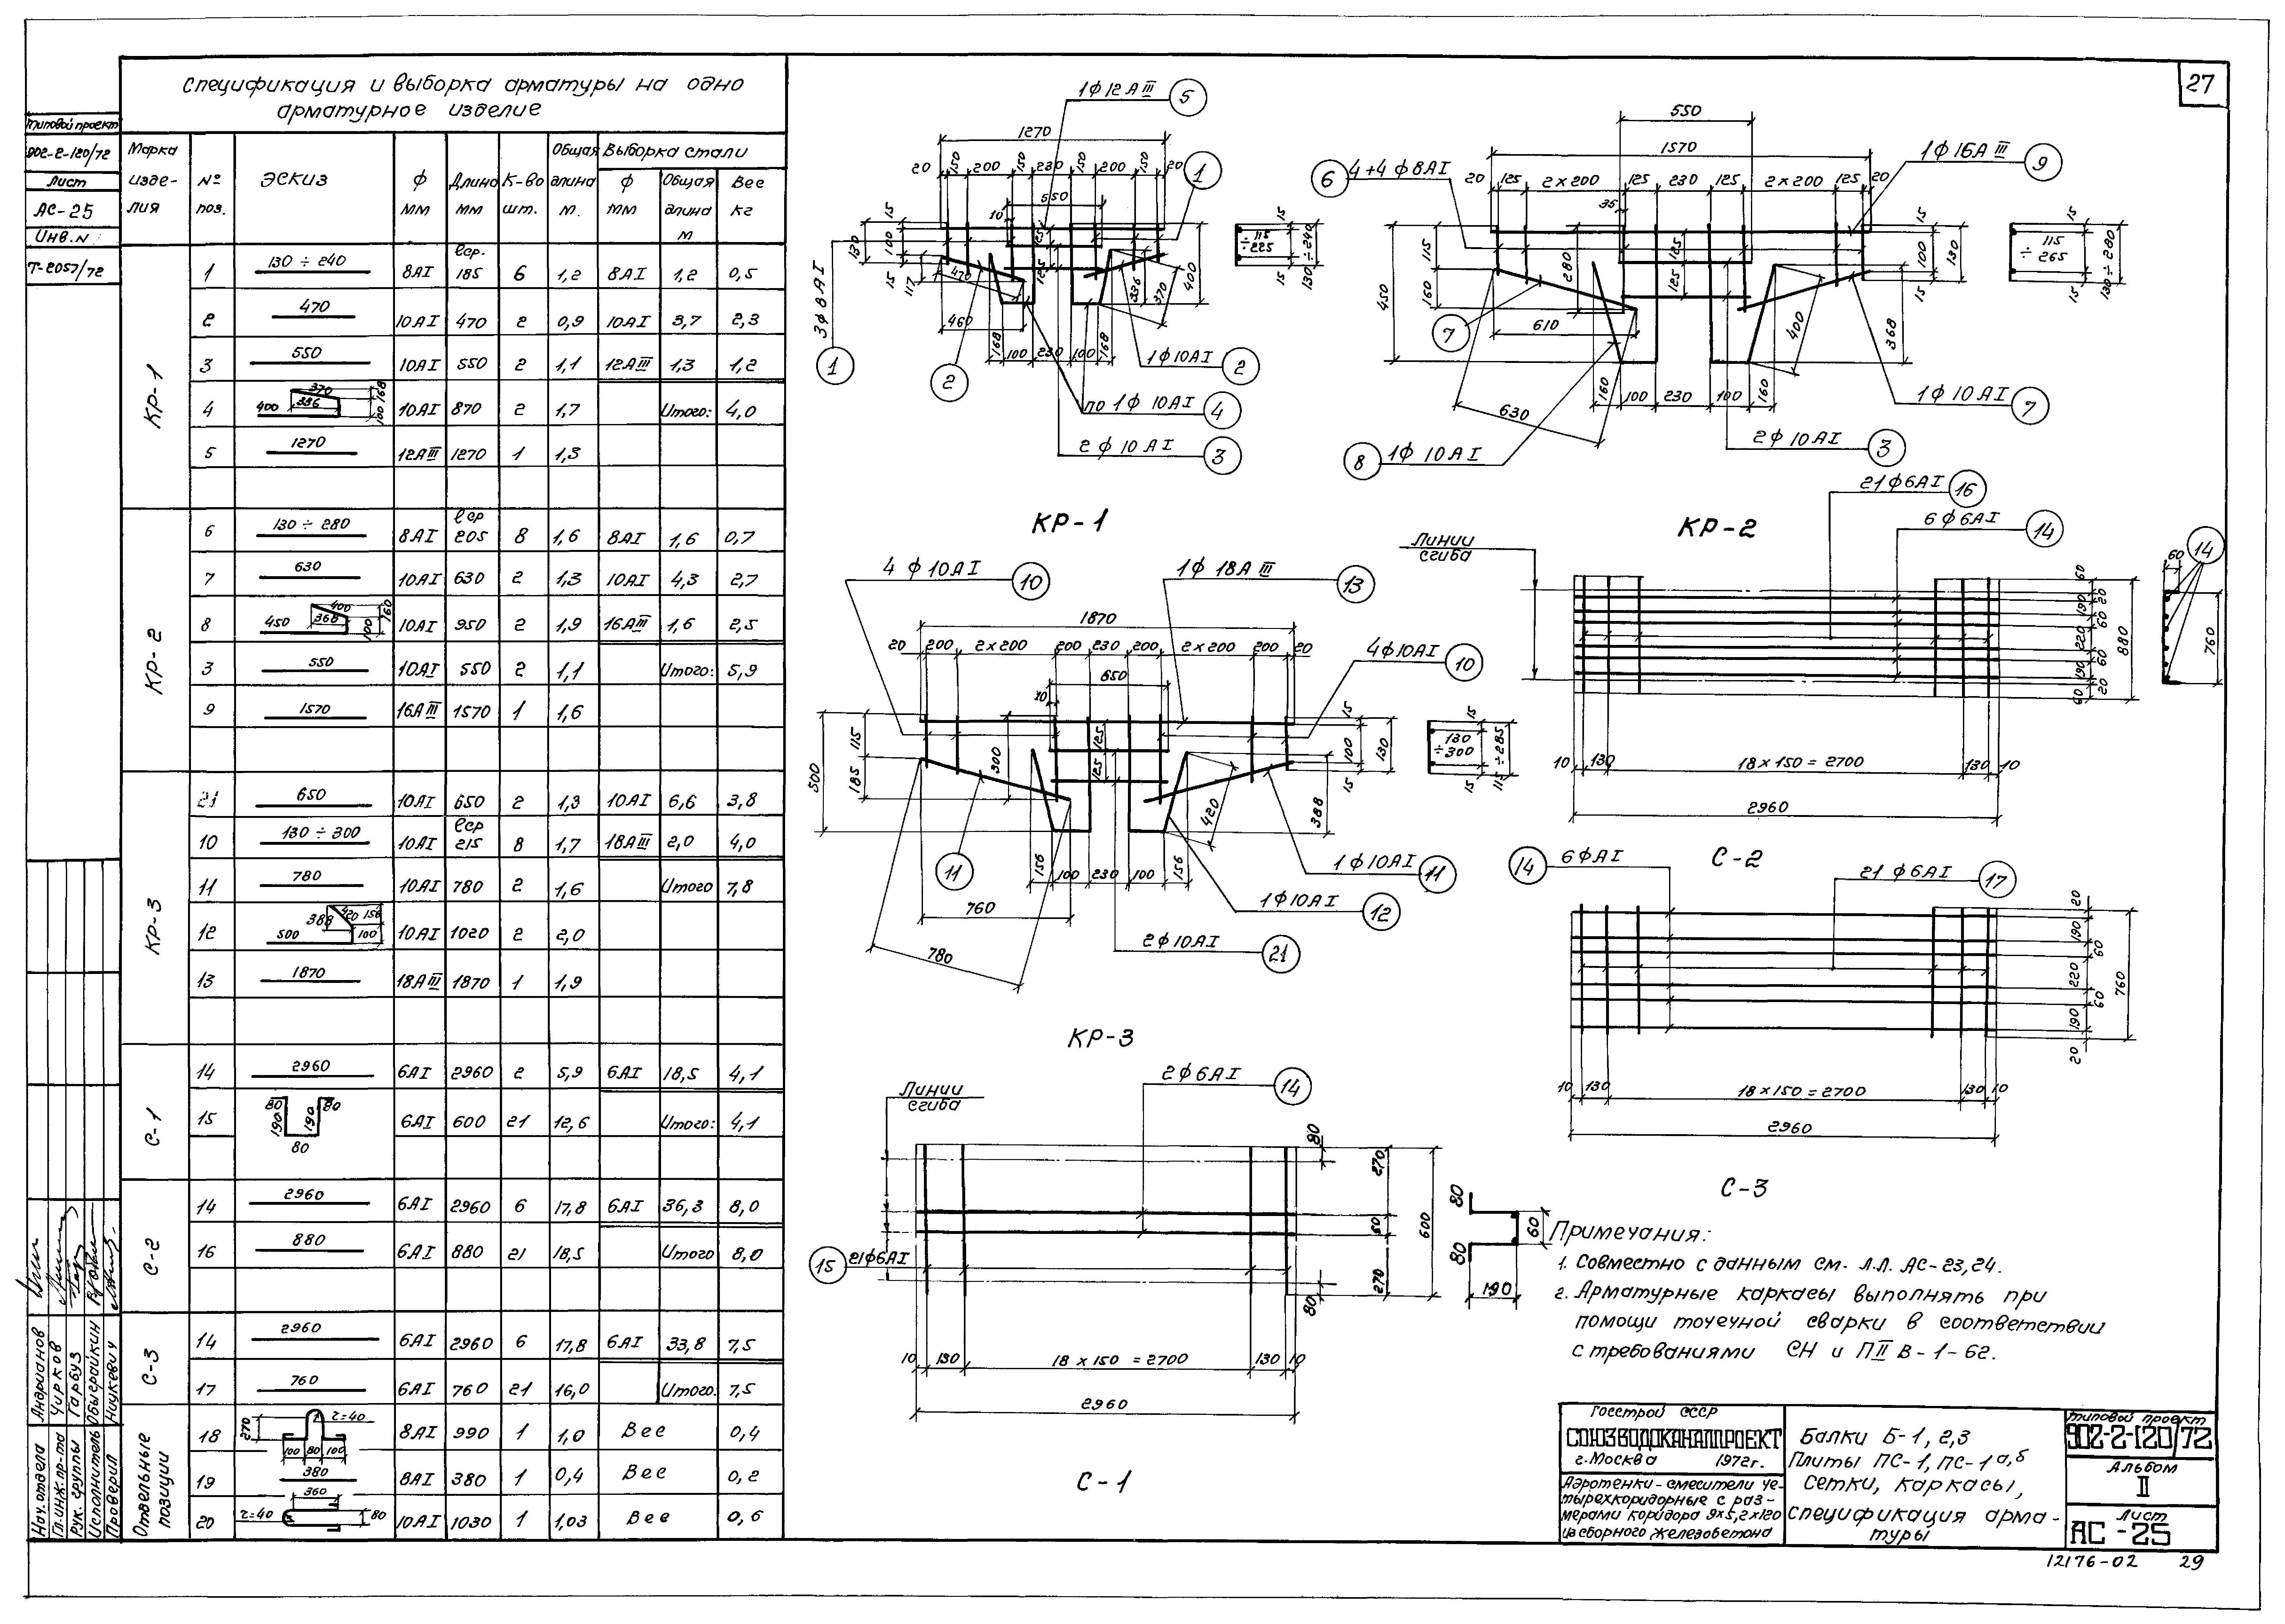 27
Спецификация и выборка арматуры на одно
арматурное изделие
Типовой проект
902-2-120/72
Лист
АС-25
Инв. N
Т-2057/72
Марка изде-лия | № поз. | Эскиз | ф мм | Длина мм | К-во шт. | Общая длина м. | Выборка стали
ф мм | Общая длина м | Вес кг
КР-1
1 | 130 ÷ 240 | 8АI | lср. 185 | 6 | 1,2 | 8АI | 1,2 | 0,5
2 | 470 | 10АI | 470 | 2 | 0,9 | 10АI | 3,7 | 2,3
3 | 550 | 10АI | 550 | 2 | 1,1 | 12АIII | 1,3 | 1,2
4 | 400 370 336 168 100 | 10АI | 870 | 2 | 1,7 | Итого: | 4,0
5 | 1270 | 12АIII | 1270 | 1 | 1,3
КР-2
6 | 130 ÷ 280 | 8АI | lср 205 | 8 | 1,6 | 8АI | 1,6 | 0,7
7 | 630 | 10АI | 630 | 2 | 1,3 | 10АI | 4,3 | 2,7
8 | 450 400 368 160 100 | 10АI | 950 | 2 | 1,9 | 16АIII | 1,6 | 2,5
3 | 550 | 10АI | 550 | 2 | 1,1 | Итого: | 5,9
9 | 1570 | 16АIII | 1570 | 1 | 1,6
КР-3
21 | 650 | 10АI | 650 | 2 | 1,3 | 10АI | 6,6 | 3,8
10 | 130 ÷ 300 | 10АI | lср 215 | 8 | 1,7 | 18АIII | 2,0 | 4,0
11 | 780 | 10АI | 780 | 2 | 1,6 | Итого | 7,8
12 | 500 388 420 156 100 | 10АI | 1020 | 2 | 2,0
13 | 1870 | 18АIII | 1870 | 1 | 1,9
С-1
14 | 2960 | 6АI | 2960 | 2 | 5,9 | 6АI | 18,5 | 4,1
15 | 80 190 190 80 80 | 6АI | 600 | 21 | 12,6 | Итого: | 4,1
С-2
14 | 2960 | 6АI | 2960 | 6 | 17,8 | 6АI | 36,3 | 8,0
16 | 880 | 6АI | 880 | 21 | 18,5 | Итого | 8,0
С-3
14 | 2960 | 6АI | 2960 | 6 | 17,8 | 6АI | 33,8 | 7,5
17 | 760 | 6АI | 760 | 21 | 16,0 | Итого. | 7,5
Отдельные позиции
18 | 270 r=40 100 80 100 | 8АI | 990 | 1 | 1,0 | Вес | 0,4
19 | 380 | 8АI | 380 | 1 | 0,4 | Вес | 0,2
20 | 360 r=40 80 | 10АI | 1030 | 1 | 1,03 | Вес | 0,6
Нач. отдела Андрианов
Гл. инж. пр-та Чирков
Рук. группы Гарбуз
Исполнитель
Проверил
1ф12АIII 5
1270
20 150 200 150 230 150 200 150 20
1
550
10
15 100 130 15 117
125 125
470
460
168 100 230 100 168
336 370 400
3ф8АI 1
2
1ф10АI 2
по 1ф10АI 4
2ф10АI 3
15 ÷ 115 225 15 130÷240
КР-1
550
1570
1ф16АIII 9
6 4+4ф8АI
20 125 2×200 125 230 125 2×200 125 20
35
450 115 160 280
125 125
15 100 130 15
610
630
7
400 368
160 100 230 100 160
1ф10АI 7
2ф10АI 3
8 1ф10АI
15 115 ÷ 265 15 130÷280
КР-2
4ф10АI 10
1ф18АIII 13
1870
20 200 2×200 200 230 200 2×200 200 20
4ф10АI 10
650
10
500 115 185 300
125 125
15 100 130 15
420 388
156 100 230 100 156
760
780
11
1ф10АI 11
1ф10АI 12
2ф10АI 21
15 130 ÷300 15 115÷285
КР-3
21ф6АI 16
6ф6АI 14
Линии
сгиба
14
60
60 20 190 60 220 60 190 20 60
880
760
10 130 18×150=2700 130 10
2960
С-2
14 6фАI
21ф6АI 17
20 190 60 220 60 190 20
760
10 130 18×150=2700 130 10
2960
С-3
Линии
сгиба
2ф6АI 14
15 21ф6АI
80 270 60 270 80
600
10 130 18×150=2700 130 10
2960
80 60 80 190
С-1
Примечания:
1. Совместно с данным см. л.л. АС-23,24.
2. Арматурные каркасы выполнять при
помощи точечной сварки в соответствии
с требованиями СН и ПII В-1-62.
Госстрой СССР
СОЮЗВОДОКАНАЛПРОЕКТ
г. Москва 1972г.
Аэротенки-смесители че-
тырехкоридорные с раз-
мерами коридора 9×5,2×120
из сборного железобетона
Балки Б-1,2,3
Плиты ПС-1, ПС-1а,б
Сетки, каркасы,
спецификация арма-
туры
Типовой проект
902-2-120/72
Альбом
II
Лист
АС-25
12176-02 29